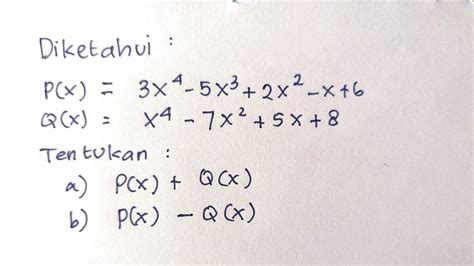 Diketahui :
P(x) = 3x⁴ - 5x³ + 2x² - x + 6
Q(x) = x⁴ - 7x² + 5x + 8
Tentukan :
a) P(x) + Q(x)
b) P(x) - Q(x)